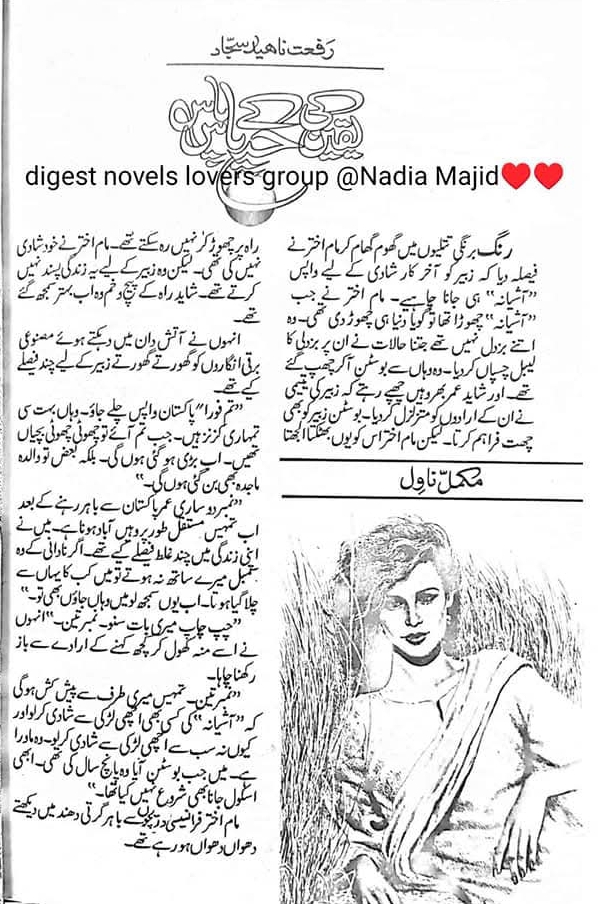 رفعت ناهید سجاد
یقین کے حیا پاس ہو
digest novels lovers group @Nadia Majid♥♥
رنگ برنگی تتلیوں میں گھوم گھام کر مام اختر نے
فیصلہ دیا کہ زبیر کو آخر کار شادی کے لیے واپس
”آشیانہ“ ہی جانا چاہیے۔ مام اختر نے جب
”آشیانہ“ چھوڑا تھا تو گویا دنیا ہی چھوڑ دی تھی۔ وہ
اتنے بزدل نہیں تھے جتنا حالات نے ان پر بزدلی کا
لیبل چسپاں کر دیا۔ وہ وہاں سے بوسٹن آ کر چھپ گئے
تھے۔ اور شاید عمر بھر وہیں چھپے رہتے کہ زبیر کی یتیمی
نے ان کے ارادوں کو متزلزل کر دیا۔ بوسٹن زبیر کو بھی
چھت فراہم کرتا۔ لیکن مام اختر اس کو یوں بھٹکتا الجھتا
مکمل ناول
راہ پر چھوڑ کر نہیں رہ سکتے تھے۔ مام اختر نے خود شادی
نہیں کی تھی۔ لیکن وہ زبیر کے لیے یہ زندگی پسند نہیں
کرتے تھے۔ شاید راہ کے پیچ و خم وہ اب بہتر سمجھ گئے
تھے۔
انہوں نے آتش دان میں دہکتے ہوئے مصنوعی
برقی انگاروں کو گھورتے گھورتے زبیر کے لیے چند فیصلے
کیے تھے۔
”تم فورا“ پاکستان واپس چلے جاؤ۔ وہاں بہت سی
تمہاری کزنز ہیں۔ جب تم آئے تو چھوٹی چھوٹی بچیاں
تھیں۔ اب بڑی ہو گئی ہوں گی۔ بلکہ بعض تو والدہ
ماجدہ بھی بن گئی ہوں گی۔“
”نمبر دو ساری عمر پاکستان سے باہر رہنے کے بعد
اب تمہیں مستقل طور پر وہیں آباد ہونا ہے۔ میں نے
اپنی زندگی میں چند غلط فیصلے کیے تھے۔ اگر نادانی کے وہ
سمبل میرے ساتھ نہ ہوتے تو میں کب کا یہاں سے
چلا گیا ہوتا۔ اب یوں سمجھ لو میں وہاں جاؤں بھی تو۔“
”چپ چاپ میری بات سنو۔ نمبر تین۔“ انہوں
نے اسے منہ کھول کر کچھ کہنے کے ارادے سے باز
رکھنا چاہا۔
”نمبر تین۔ تمہیں میری طرف سے پیش کش ہوگی
کہ ”آشیانہ“ کی کسی بھی اچھی لڑکی سے شادی کر لو اور
کیوں نہ سب سے اچھی لڑکی سے شادی کر لو۔ وہ ماورا
ہے۔ میں جب بوسٹن آیا وہ پانچ سال کی تھی۔ ابھی
اسکول جانا بھی شروع نہیں کیا تھا۔“
مام اختر فرانسیسی دریچوں سے باہر گرتی دھند میں دیکھتے
دھواں دھواں ہو رہے تھے۔